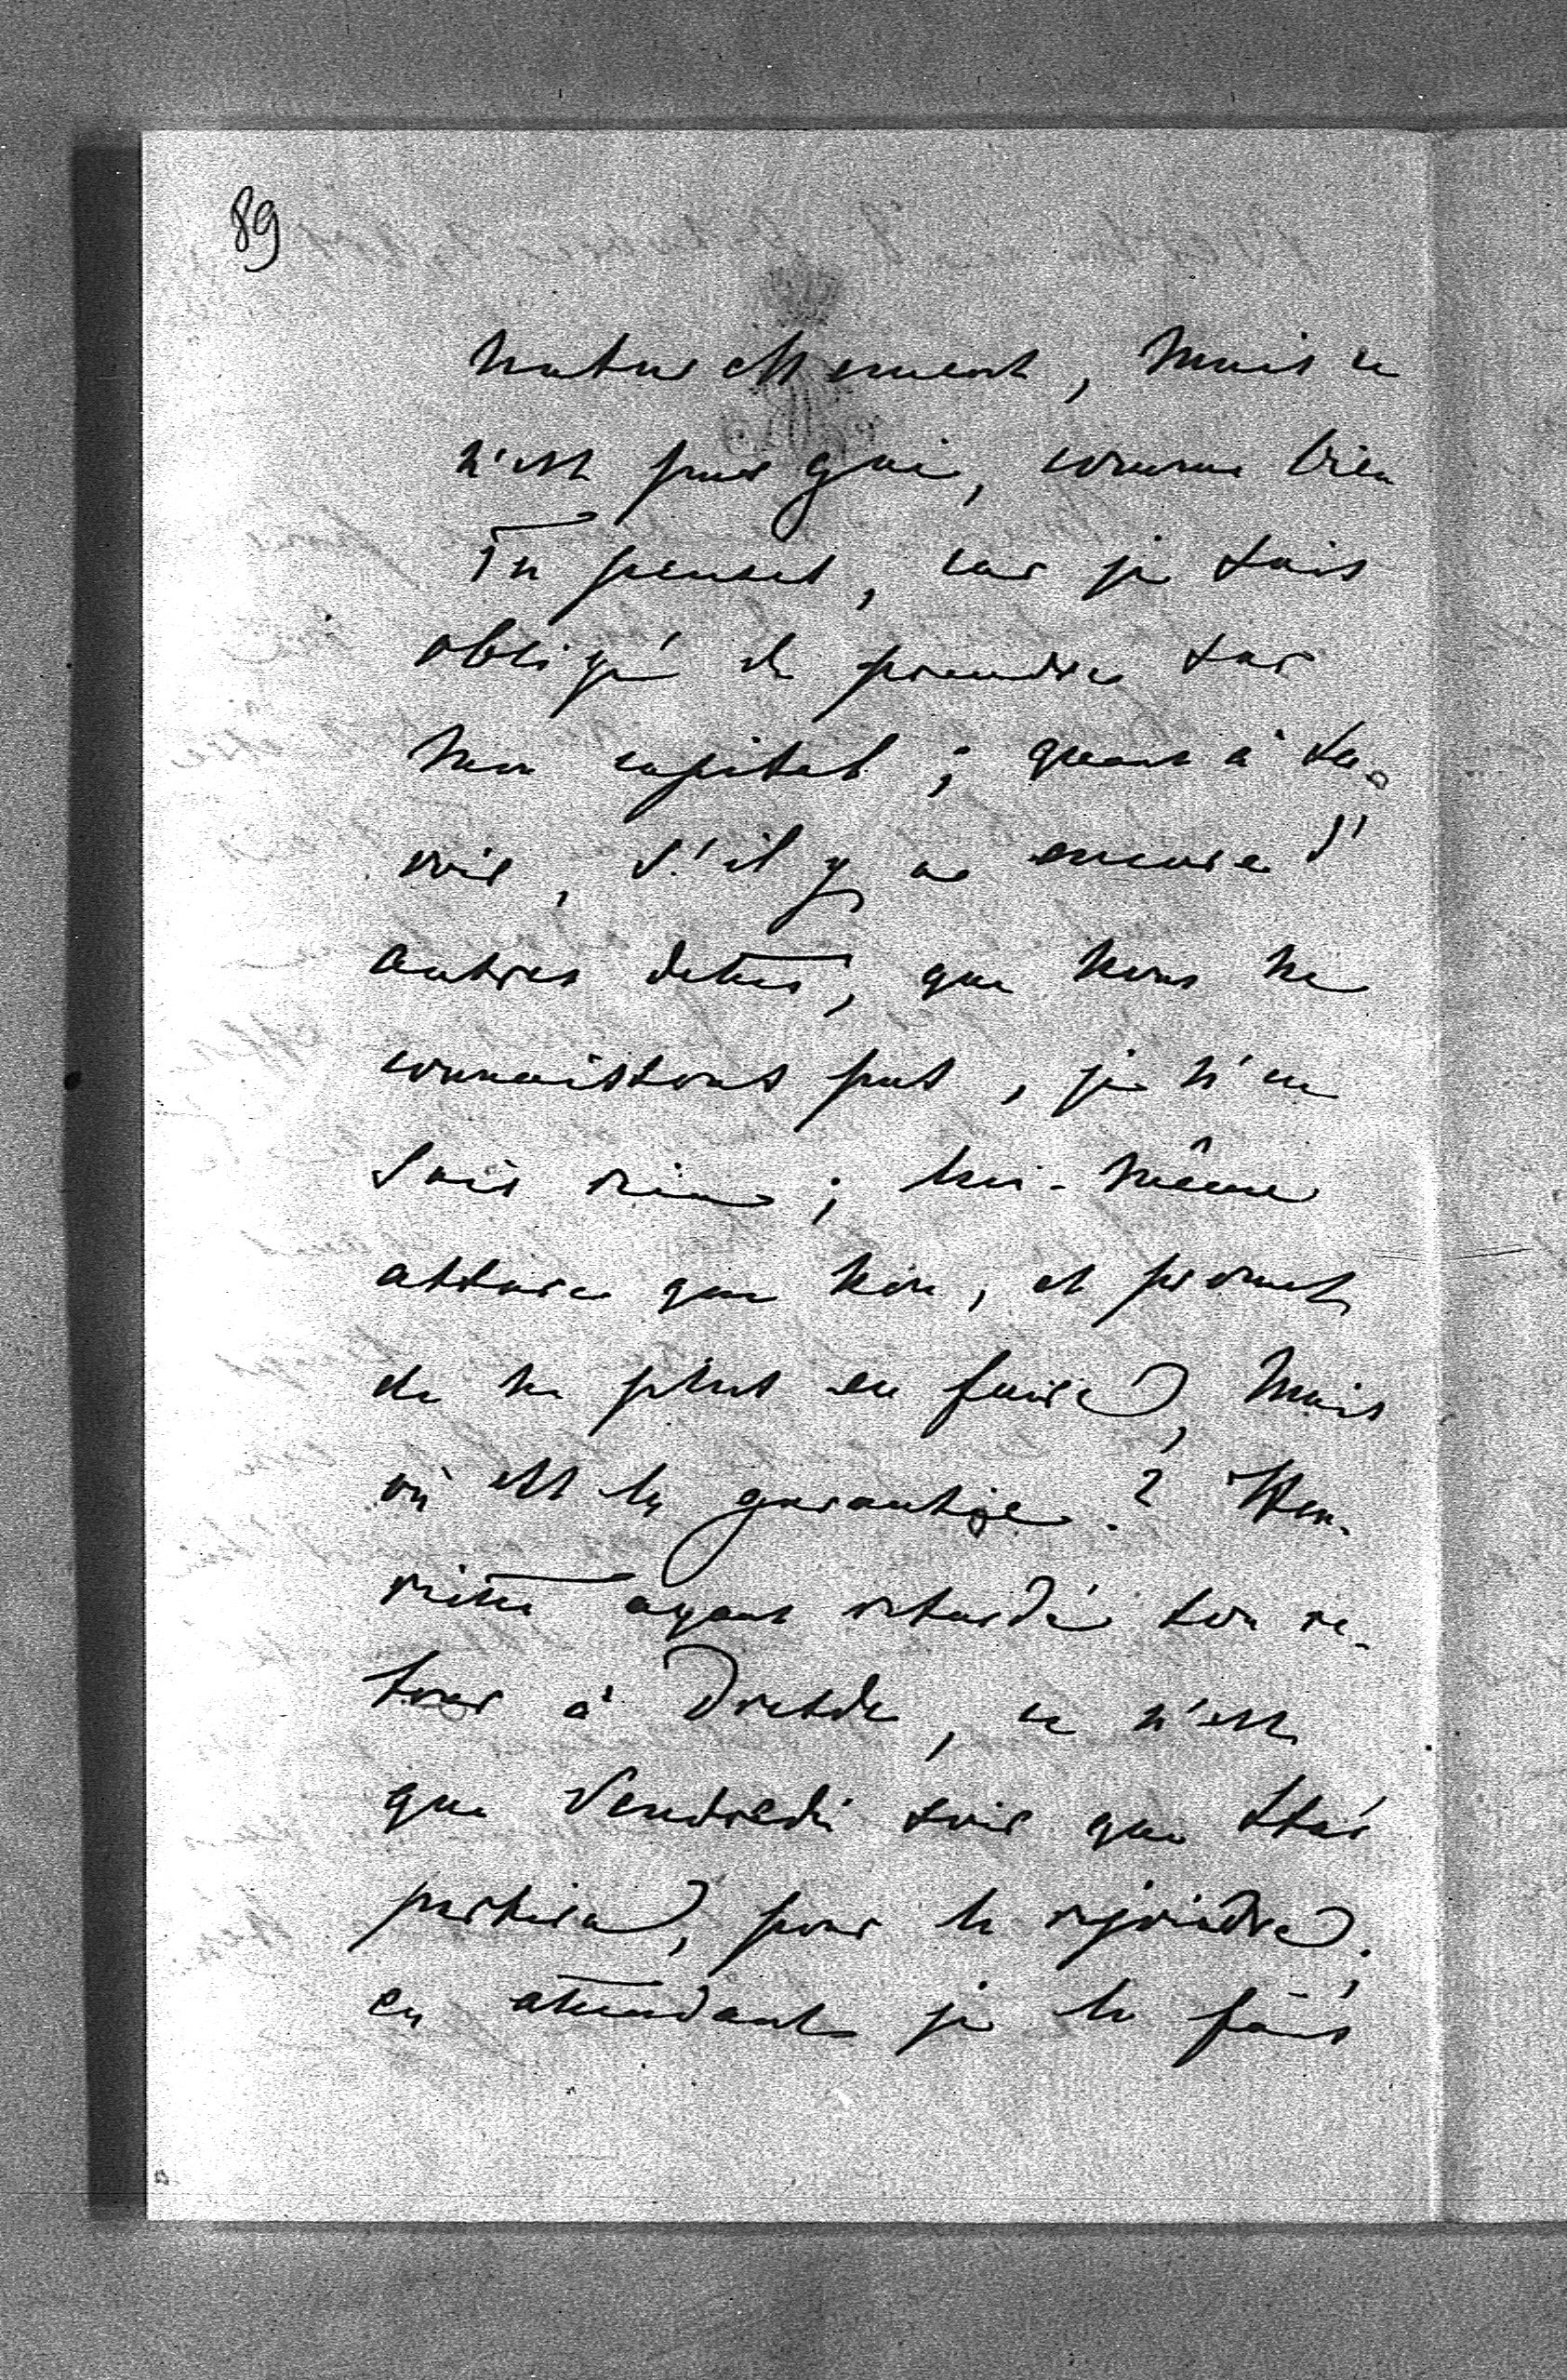 89
naturellement, mais ce
n'est pas gai, comme bien
Tu penses, car je suis
obligé de prendre sur
mon capital ; quant à sa-
voir, s'il y a encore d'
autres dettes, que nous ne
connaissons pas, je n'en
sais rien ; lui-même
assure que non, et promet
de ne plus en faire, mais
où est la garantie ? Hen-
riette ayant retardé son re-
tour à Dresde, ce n'est
que Vendredi soir que
partira, pour la rejoindre,
en attendant je le fais